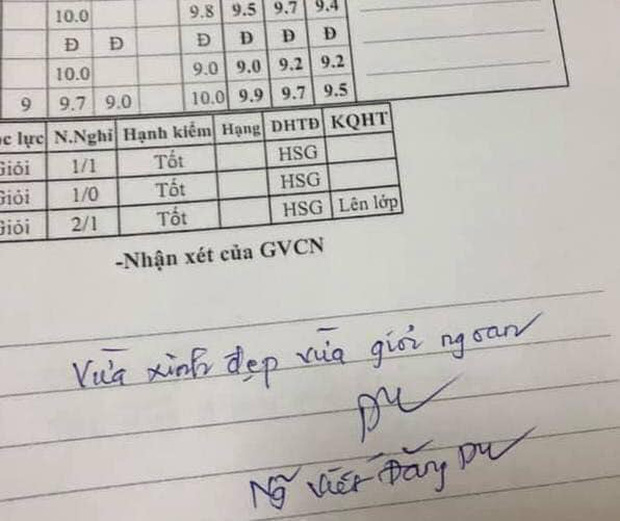 10.0 9.8 9.5 9.7 9.4
Đ Đ Đ Đ Đ Đ
10.0 9.0 9.0 9.2 9.2
9 9.7 9.0 10.0 9.9 9.7 9.5
ọc lực N.Nghỉ Hạnh kiểm Hạng DHTĐ KQHT
Giỏi 1/1 Tốt HSG
Giỏi 1/0 Tốt HSG
Giỏi 2/1 Tốt HSG Lên lớp
-Nhận xét của GVCN
Vừa xinh đẹp vừa giỏi ngoan
Ng Viết Đăng Du